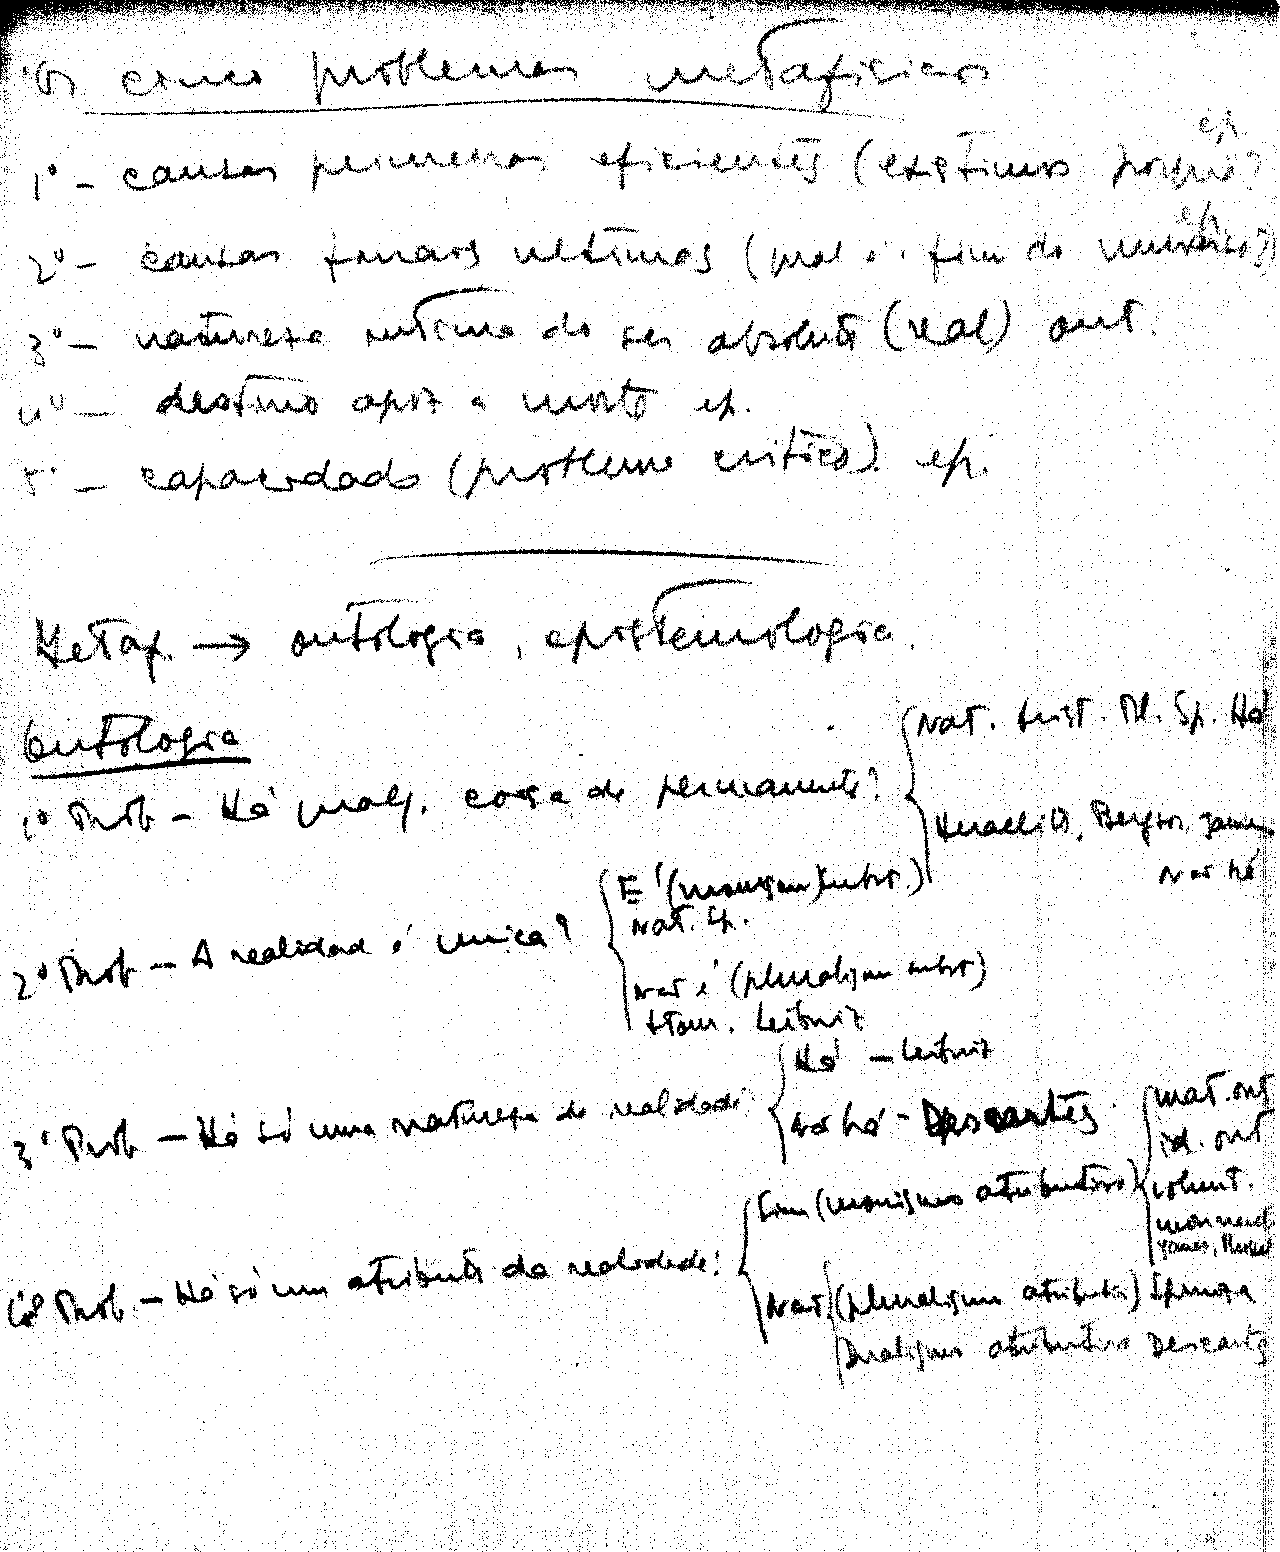 Os cinco problemas metafisicos
1º - causas primeiras eficientes (existimos porquê? ep.
2º - causas finais ultimas (qual é o fim do universo?) ep.
3º - natureza intima do ser absoluto (real) ont.
4º - destino após a morte ep.
5º - capacidade (problema critico) ep.
Metaf. → ontologia, epistemologia.
Ontologia
1º Prob - Há qualq. coisa de permanente?
Nat. Arist. Pl. Sp. Há
Heraclito, Bergson, James
não há
2º Prob - A realidade é unica?
É (monismo subst.)
Nat. Sp.
não é (pluralismo subst)
Atom. Leibniz
3º Prob - Há só uma natureza de realidade?
Há - Leibniz
não há - Descartes.
4º Prob. - Há só um atributo da realidade?
Sim (monismo atributivo)
mat. ont
id. ont
volunt.
mon. neut.
James, Russel
Não (pluralismo atributivo) Spinoza
Dualismo atributivo Descartes